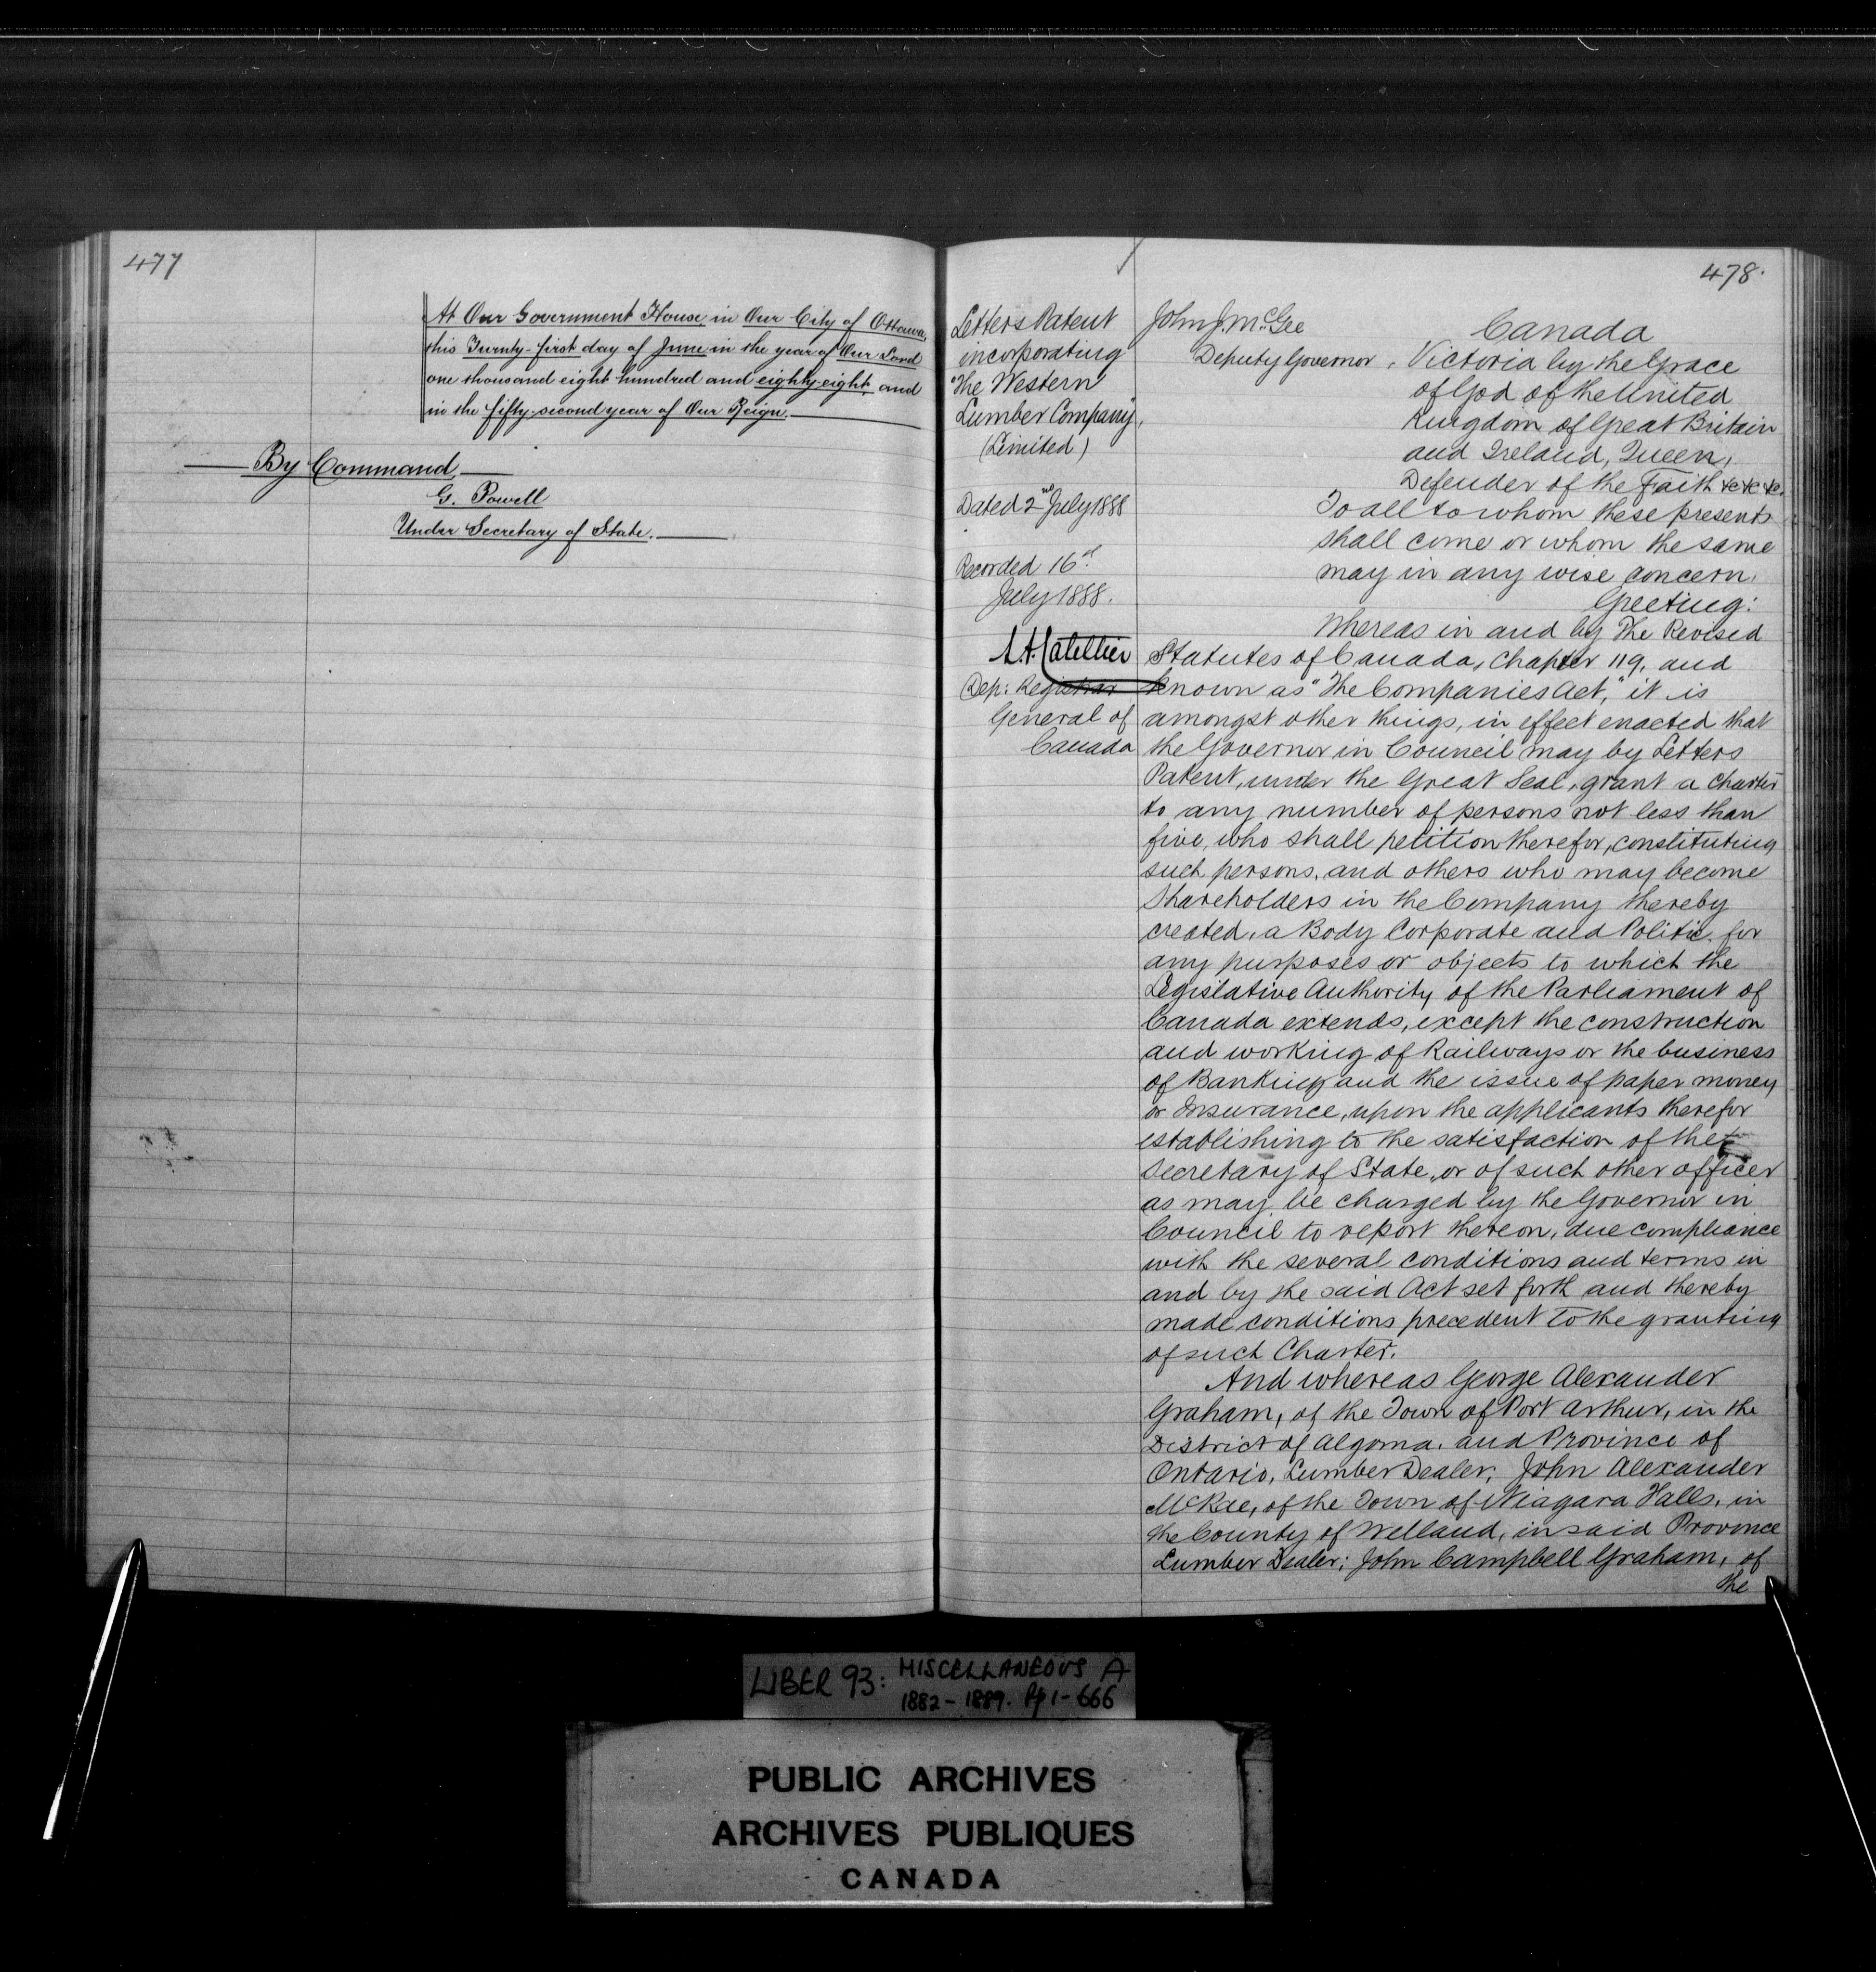 477
At Our Government House, in Our City of Ottawa,
this Twenty-first day of June in the year of Our Lord
one thousand eight hundred and eighty-eight, and
in the fifty-second year of Our Reign.
By Command,
G. Powell
Under Secretary of State.
478.
Letters Patent
incorporating
"The Western
Lumber Company,
(Limited)
Dated 2nd July 1888
Recorded 16th
July 1888.
Dep: Registrar
General of
Canada
John J. McGee
Deputy Governor.
Canada
Victoria by the Grace
of God of the United
Kingdom of Great Britain
and Ireland, Queen,
Defender of the Faith &c &c &c.
To all to whom these presents
shall come or whom the same
may in any wise concern,
Greeting:
Whereas in and by The Revised
Statutes of Canada, Chapter 119, and
known as "The Companies Act," it is
amongst other things, in effect enacted that
the Governor in Council may by Letters
Patent, under the Great Seal, grant a Charter
to any number of persons not less than
five, who shall petition therefor, constituting
such persons, and others who may become
Shareholders in the Company thereby
created, a Body Corporate and Politic, for
any purposes or objects to which the
Legislative Authority of the Parliament of
Canada extends, except the construction
and working of Railways or the business
of Banking and the issue of paper money
or Insurance, upon the applicants therefor
establishing to the satisfaction of the
Secretary of State, or of such other officer
as may be charged by the Governor in
Council to report thereon, due compliance
with the several conditions and terms in
and by the said Act set forth and thereby
made conditions precedent to the granting
of such Charter.
And whereas George Alexander
Graham, of the Town of Port Arthur, in the
District of Algoma, and Province of
Ontario, Lumber Dealer; John Alexander
McRae, of the Town of Niagara Falls, in
the County of Welland, in said Province
Lumber Dealer; John Campbell Graham, of
the
LIBER 93: MISCELLANEOUS A
1882-1889. Pp 1-666
PUBLIC ARCHIVES
ARCHIVES PUBLIQUES
CANADA